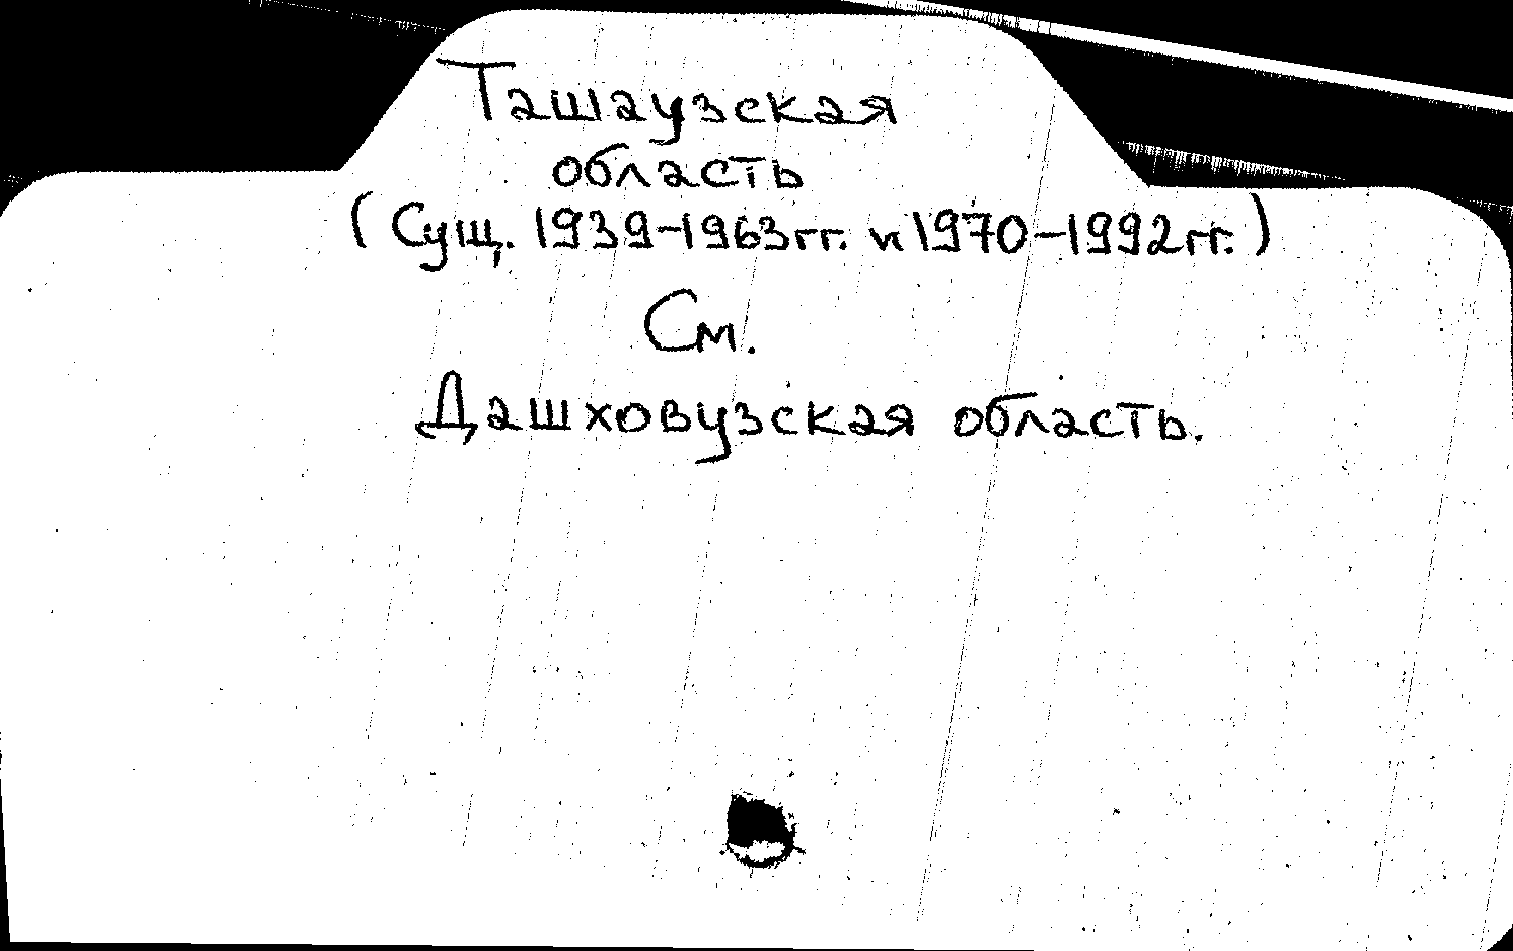 Ташаузская
область
(Сущ. 1939-1963гг. и 1970-1992гг.)
См.
Дашховузская область.